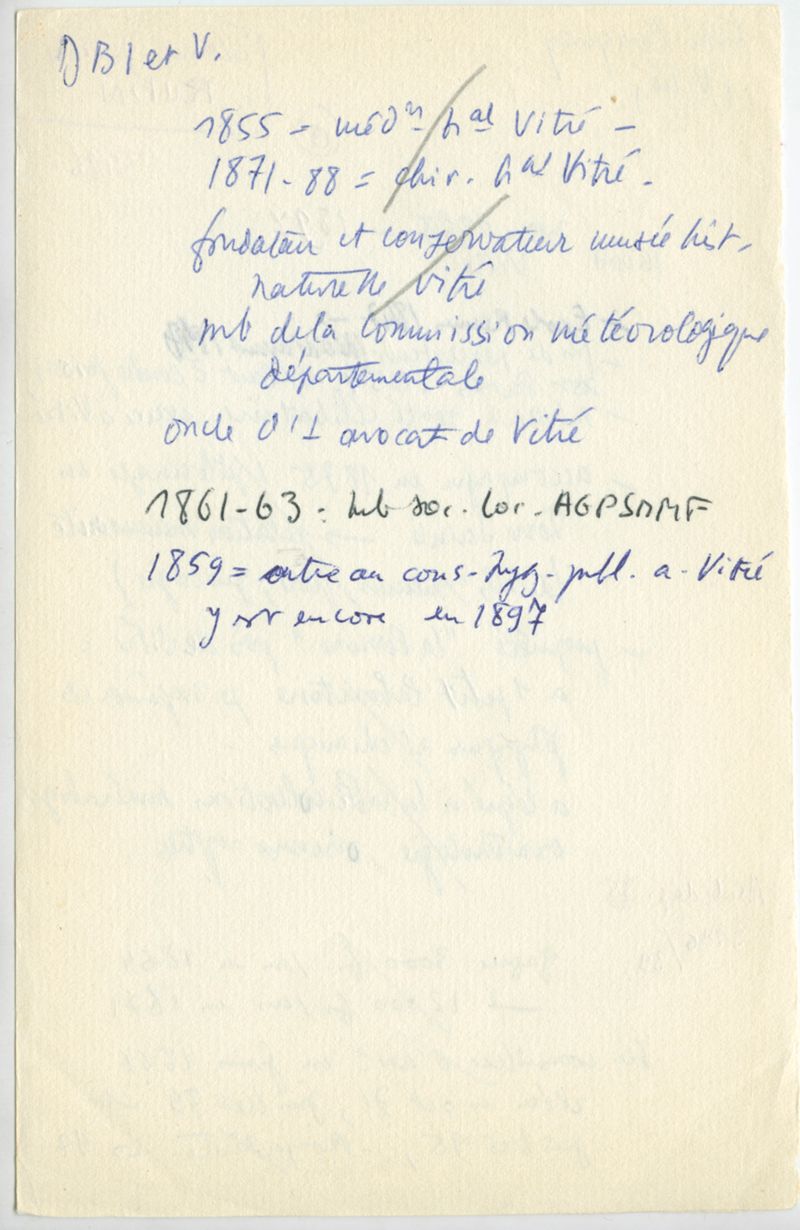 D B I et V.
1855 = méd^n h^al Vitré –
1871-88 = chir. h^al Vitré.
fondateur et conservateur musée hist.
naturelle Vitré
mb de la Commission météorologique
départementale
oncle d'1 avocat de Vitré
1861-63 : mb soc. loc. AGPSDMF
1859 = entre au cons. hyg. publ. a. Vitré
y est encore en 1897